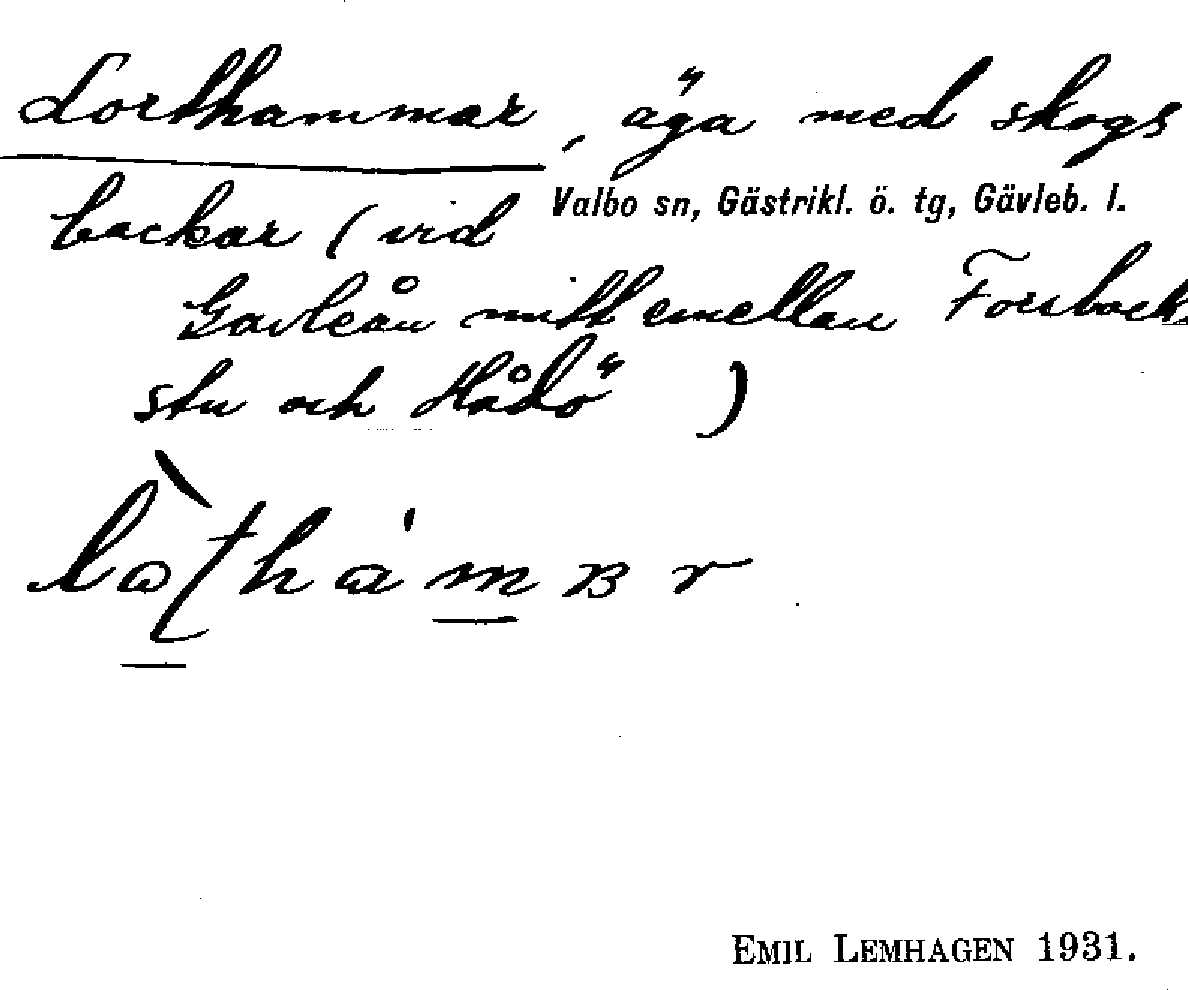 Lorthammar, äga med skogs
backar (vid
Valbo sn, Gästrikl. ö. tg, Gävleb. l.
Gavleån mitt emellan Forsback
stu och Hådö )
EMIL LEMHAGEN 1931.